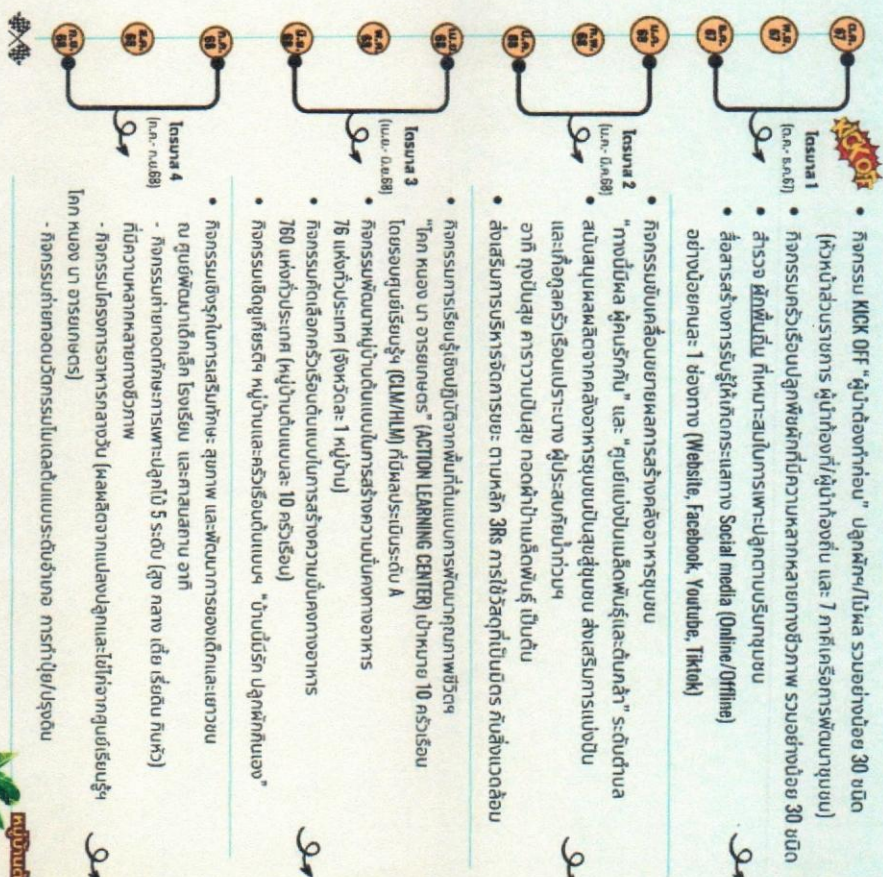 KICK OFF
ต.ค. 67
พ.ย. 67
ธ.ค. 67
ไตรมาส 1
(ต.ค.- ธ.ค.67)
• กิจกรรม KICK OFF "ผู้นำต้องทำก่อน" ปลูกผักฯ/ไม้ผล รวมอย่างน้อย 30 ชนิด
(หัวหน้าส่วนราชการ ผู้นำท้องที่/ผู้นำท้องถิ่น และ 7 ภาคีเครือการพัฒนาชุมชน)
• กิจกรรมครัวเรือนปลูกพืชผักที่มีความหลากหลายทางชีวภาพ รวมอย่างน้อย 30 ชนิด
• สำรวจ ผักพื้นถิ่น ที่เหมาะสมในการเพาะปลูกตามบริบทชุมชน
• สื่อสารสร้างการรับรู้ให้เกิดกระแสทาง Social media (Online/Offline)
อย่างน้อยคนละ 1 ช่องทาง (Website, Facebook, Youtube, Tiktok)
ม.ค. 68
ก.พ. 68
มี.ค. 68
ไตรมาส 2
(ม.ค.- มี.ค.68)
• กิจกรรมขับเคลื่อนขยายผลการสร้างคลังอาหารชุมชน
"ทางนี้มีผล ผู้คนรักกัน" และ "ศูนย์แบ่งปันเมล็ดพันธุ์และต้นกล้า" ระดับตำบล
• สนับสนุนผลผลิตจากคลังอาหารชุมชนปันสุขสู่ชุมชน ส่งเสริมการแบ่งปัน
และเกื้อกูลครัวเรือนเปราะบาง ผู้ประสบภัยน้ำท่วมฯ
อาทิ ถุงปันสุข คาราวานปันสุข ทอดผ้าป่าเมล็ดพันธุ์ เป็นต้น
• ส่งเสริมการบริหารจัดการขยะ ตามหลัก 3Rs การใช้วัสดุที่เป็นมิตร กับสิ่งแวดล้อม
เม.ย. 68
พ.ค. 68
มิ.ย. 68
ไตรมาส 3
(เม.ย.- มิ.ย.68)
• กิจกรรมการเรียนรู้เชิงปฏิบัติจากพื้นที่ต้นแบบการพัฒนาคุณภาพชีวิตฯ
"โคก หนอง นา อารยเกษตร" (ACTION LEARNING CENTER) เป้าหมาย 10 ครัวเรือน
โดยรอบศูนย์เรียนรู้ฯ (CLM/HLM) ที่มีผลประเมินระดับ A
• กิจกรรมพัฒนาหมู่บ้านต้นแบบในการสร้างความมั่นคงทางอาหาร
76 แห่งทั่วประเทศ (จังหวัดละ 1 หมู่บ้าน)
• กิจกรรมคัดเลือกครัวเรือนต้นแบบในการสร้างความมั่นคงทางอาหาร
760 แห่งทั่วประเทศ (หมู่บ้านต้นแบบละ 10 ครัวเรือน)
• กิจกรรมเชิดชูเกียรติฯ หมู่บ้านและครัวเรือนต้นแบบฯ "บ้านนี้มีรัก ปลูกผักกินเอง"
ก.ค. 68
ส.ค. 68
ก.ย. 68
ไตรมาส 4
(ก.ค.- ก.ย.68)
• กิจกรรมเชิงรุกในการเสริมทักษะ สุขภาพ และพัฒนาการของเด็กและเยาวชน
ณ ศูนย์พัฒนาเด็กเล็ก โรงเรียน และศาสนสถาน อาทิ
- กิจกรรมถ่ายทอดทักษะการเพาะปลูกไม้ 5 ระดับ (สูง กลาง เตี้ย เรี่ยดิน กินหัว)
ที่มีความหลากหลายทางชีวภาพ
- กิจกรรมโครงการอาหารกลางวัน (ผลผลิตจากแปลงปลูกและไข่ไก่จากศูนย์เรียนรู้ฯ
โคก หนอง นา อารยเกษตร)
- กิจกรรมถ่ายทอดนวัตกรรมโมเดลต้นแบบระดับอำเภอ การทำปุ๋ย/ปรุงดิน